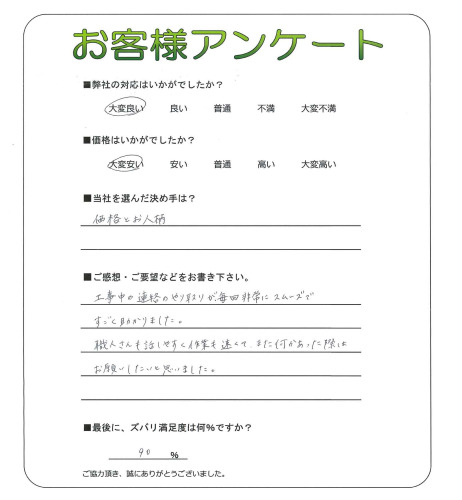 お客様アンケート
■弊社の対応はいかがでしたか？
大変良い 良い 普通 不満 大変不満
■価格はいかがでしたか？
大変安い 安い 普通 高い 大変高い
■当社を選んだ決め手は？
価格とお人柄
■ご感想・ご要望などをお書き下さい。
工事中の連絡のやり取りが毎回非常にスムーズで
すごく助かりました。
職人さんも話しやすく作業も速くて、また何かあった際は
お願いしたいと思いました。
■最後に、ズバリ満足度は何%ですか？
90 %
ご協力頂き、誠にありがとうございました。